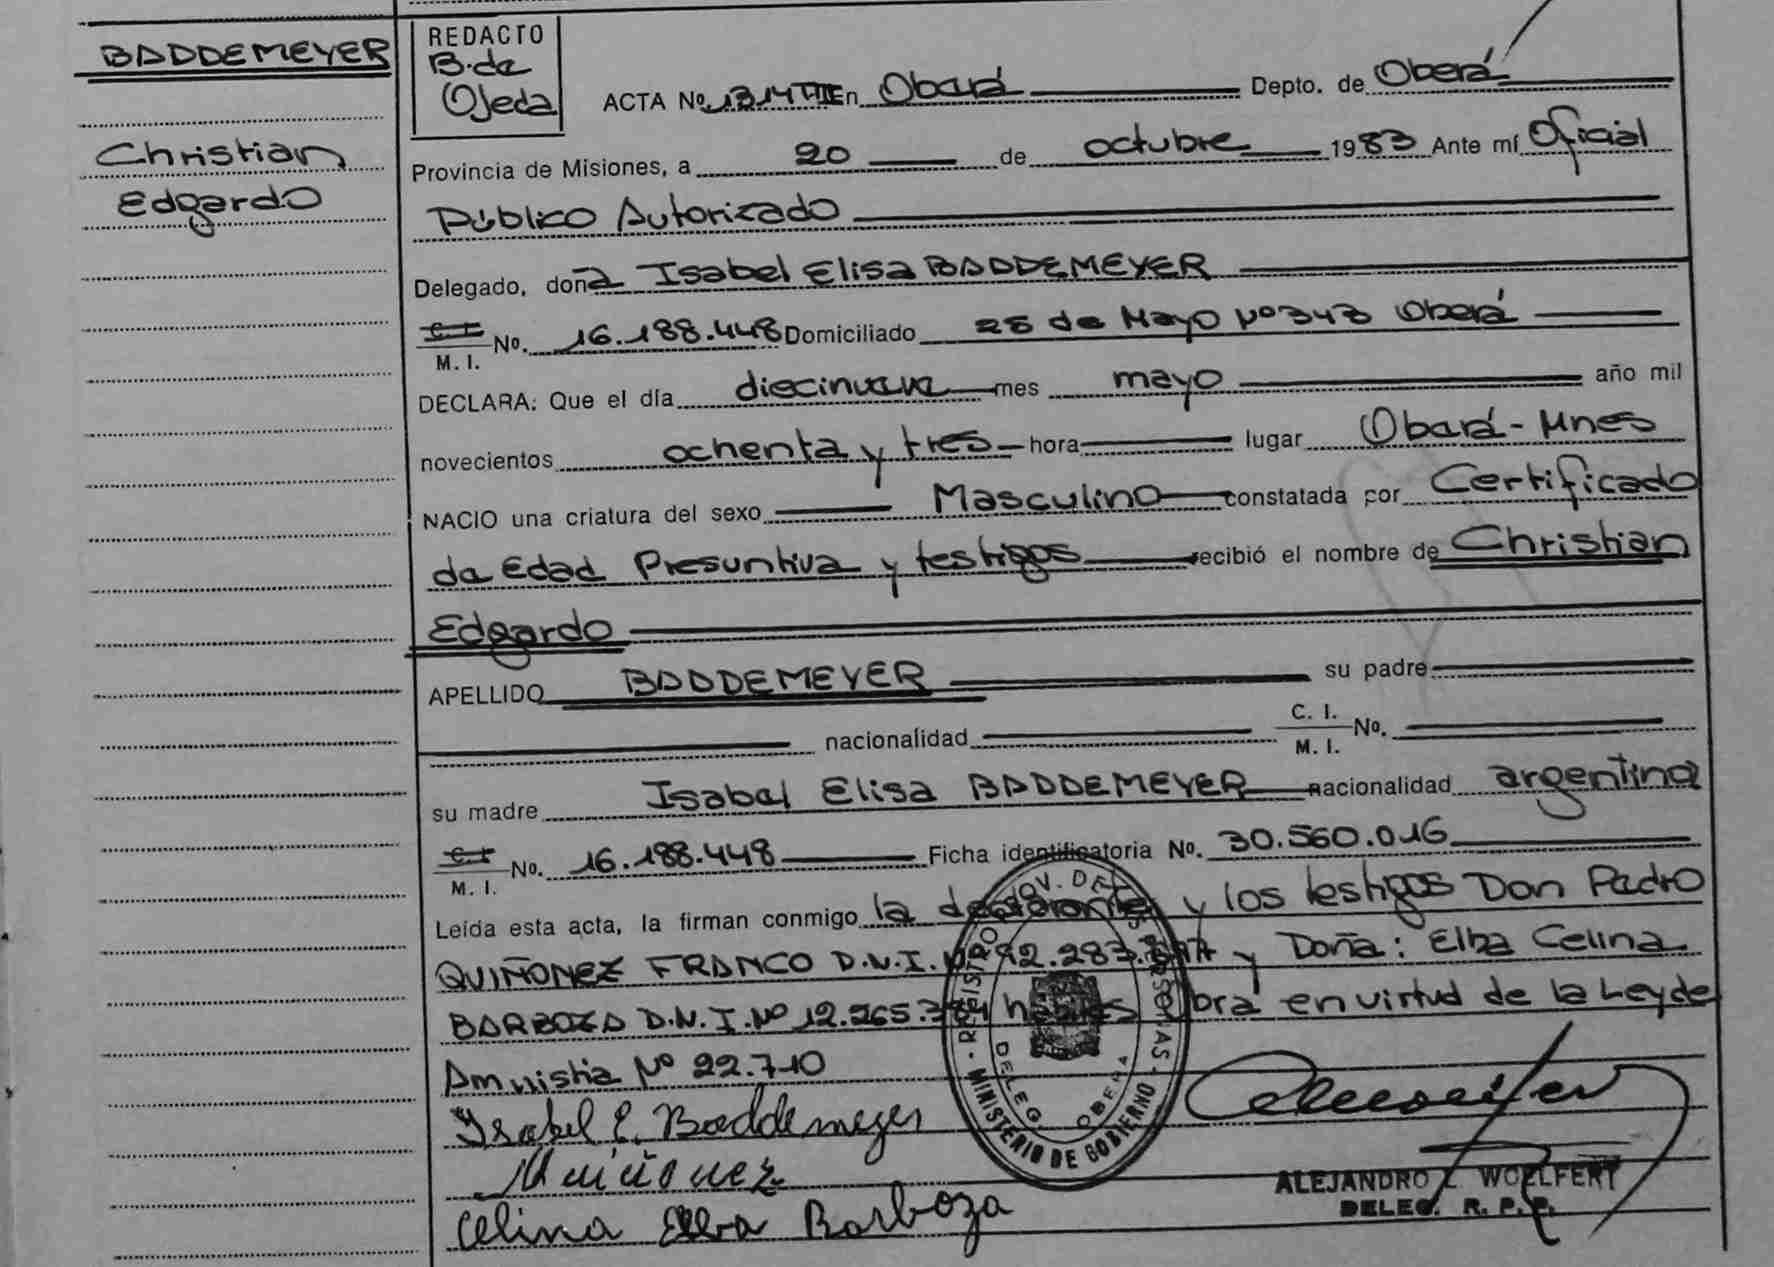 BADDEMEYER
Christian
Edgardo
REDACTO
B. de
Ojeda
ACTA No. 1314 TIII En Oberá Depto. de Oberá
Provincia de Misiones, a 20 de octubre 1983 Ante mí Oficial
Público Autorizado
Delegado, doña Isabel Elisa BADDEMEYER
C. I.
M. I. No. 16.188.448 Domiciliado 25 de Mayo Nº 343 Oberá
DECLARA: Que el día diecinueve mes mayo año mil
novecientos ochenta y tres hora lugar Oberá - Mnes
NACIO una criatura del sexo Masculino constatada por Certificado
de Edad Presuntiva y testigos recibió el nombre de Christian
Edgardo
APELLIDO BADDEMEYER su padre
nacionalidad C. I. M. I. No.
su madre Isabel Elisa BADDEMEYER nacionalidad argentina
C. I.
M. I. No. 16.188.448 Ficha identificatoria No. 30.560.016
Leída esta acta, la firman conmigo la declarante y los testigos Don Pedro
QUIÑONEZ FRANCO D.N.I. Nº y Doña: Elba Celina
BARBOZA D.N.I. Nº hábiles obra en virtud de la Ley de
Amnistia Nº 22.710
Isabel E. Baddemeyer
Quiñonez
Celina Elba Barboza
REGISTRO PROV. DE LAS PERSONAS
MINISTERIO DE GOBIERNO
DELEG. OBERA
ALEJANDRO WOELFERT
DELEG. R. P. P.